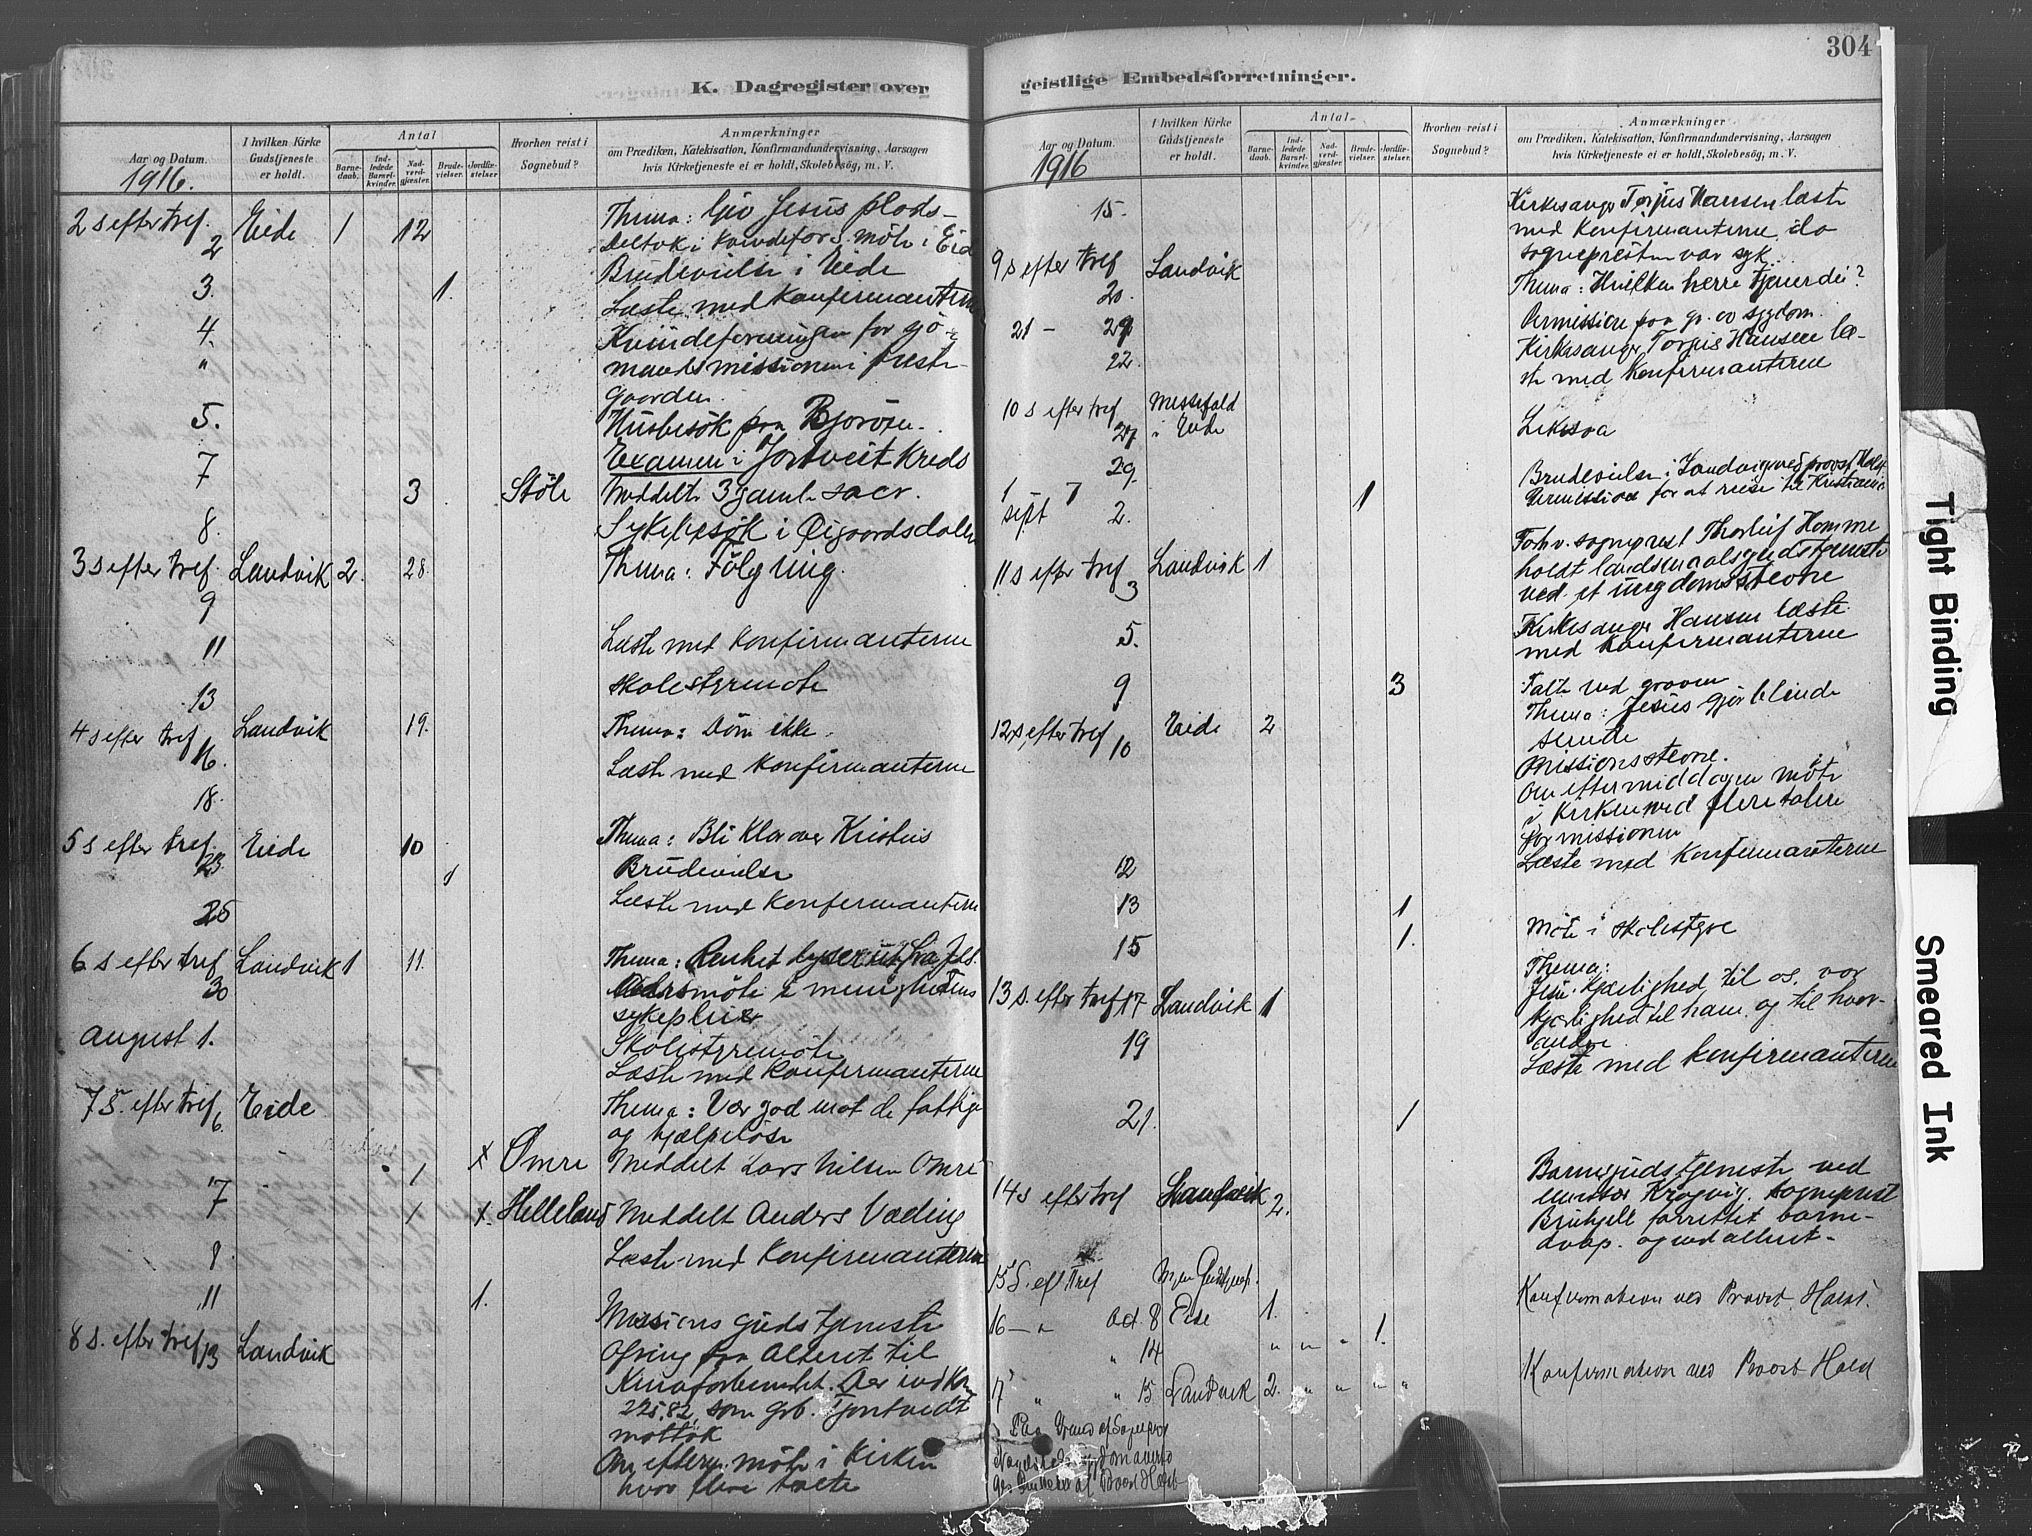 304
K. Dagregister over
geistlige Embedsforretninger.
Aar og Datum.
1916.
I hvilken Kirke Gudstjeneste er holdt.
Antal
Barnedaab.
Indledede Barselkvinder.
Nadverdgjæster.
Brudevielser.
Jordfæstelser
Hvorhen reist i Sognebud?
Anmærkninger
om Prædiken, Katekisation, Konfirmandundervisning, Aarsagen
hvis Kirketjeneste ei er holdt, Skolebesög, m. V.
2 s efter tref. 2 Eide 1 12 Thema: Giv Jesus plads-
Deltok i kvindefor.s. möte i Eide
3. 1. Brudevielse i Eide
4. Læste med konfirmanterne
" Kvindeforeningen for sjö-
mandsmissionen i preste-
gaarden.
5. Husbesök paa Bjorøen.
7 Examen i Jortveit Kreds
3 Støle Meddelte 3 gamle sacr.
8. Sykebesök i Øigaardsdalen
3 s efter tref. 9 Landvik 2. 28. Thema: Fölg mig.
11 Læste med konfirmanterne
13 Skolestyremöte
4 s efter tref 16. Landvik 19. Thema: Döm ikke.
18. Læste med konfirmanterne
5 s efter tref. 23 Eide 10 Thema: Bli klar over Kristus
1 Brudevielse
25 Læste med konfirmanterne
6 s efter tref 30 Landvik 1 11. Thema: Renhet lyser ut fra Jes.
Aarsmöte i menighetens
sykepleie
August 1. Skolestyremöte
Læste med konfirmanterne
7 S. efter tref. 6. Eide Thema: Vær god mot de fattige
og hjælpelöse
1 x Omre Meddelt Lars Nilsen Omre
7 1 x. Helleland Meddelt Anders Væding
8 Læste med konfirmanterne
11 1.
8 s. efter tref 13 Landvik Missions gudstjeneste
Ofring paa Alteret til
Kinaforbundet. Der indkom
225,82, som grb. Tjortvedt
mottok
Om efterm. möte i Kirken
hvor flere talte
Aar og Datum.
1916
I hvilken Kirke Gudstjeneste er holdt.
Antal.
Barnedaab.
Indledede Barselkvinder.
Nadverdgjæster.
Brudevielser.
Jordfæstelser.
Hvorhen reist i Sognebud?
Anmærkninger
om Prædiken, Katekisation, Konfirmandundervisning, Aarsagen
hvis Kirketjeneste ei er holdt, Skolebesög, m. V.
15. Kirkesanger Torjus Hansen læste
med konfirmanterne, da
sognepresten var syk.
9 s efter tref 20. Landvik Thema: Hvilken herre tjener du?
21 - 29 Permission paa gr. av sygdom.
22. Kirkesanger Torjus Hansen læ-
ste med konfirmanterne
10 s efter tref 27 Messefald i Eide
29.
1 Brudevielse i Landvig ved provst Holst.
sept 2. Permission for at reise til Kristiania
11 s efter tref 3 Landvik 1 Forhv. sogneprest Thorleif Homme
holdt landsmaalsgudstjeneste
ved et ungdomsstevne
5. Kirkesanger Hansen læste
med konfirmanterne
9 3 Talte ved graven
12 s, efter tref 10 Eide 2 Thema: Jesus gjør blinde
seende
Missionsstevne.
Om eftermiddagen möte
i Kirken ved flere talere
for missionen
12 Læste med konfirmanterne
13 1
15 1. Möte i skolestyre
13 s. efter tref 17 Landvik 1 Thema:
Jesu Kjærlighed til os, vor
kjærlighed til ham og til hver-
andre
19 Læste med konfirmanterne
21. 1
14 s efter tref Landvik 2. Barnegudstjeneste ved
emissær Kragvig. Sogneprest
forrettet barne-
daap. og ved alteret-
15 S. eft Tref Ingen Gudstjenst.
16 — " Oct 8 Eide 1. Konfirmation ved Provst Holst.
" 14 " " " 1.
17 " " 15 Landvik 2. " " " " Konfirmation ved Provst Holst
Paa Grund af
af Provst Holst
Tight Binding
Smeared Ink